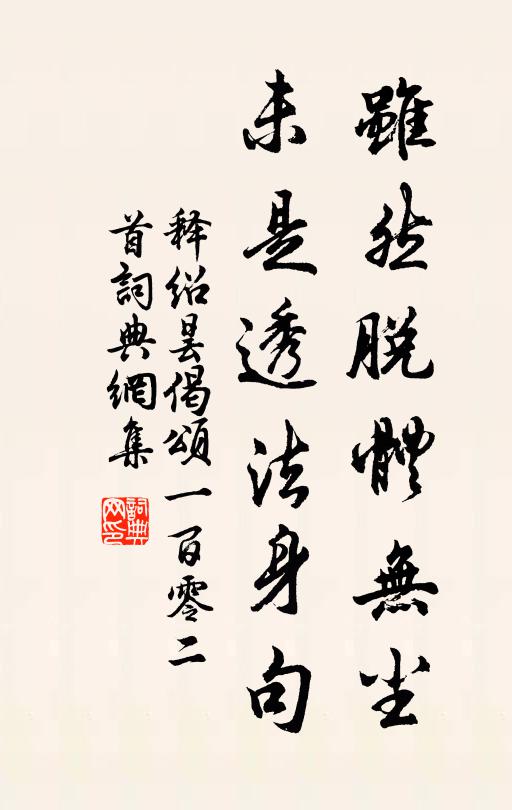 雖然脱體無尘
未是透法身句
释绍昙偈頌一百零二
首詞典網集
詞典
网印